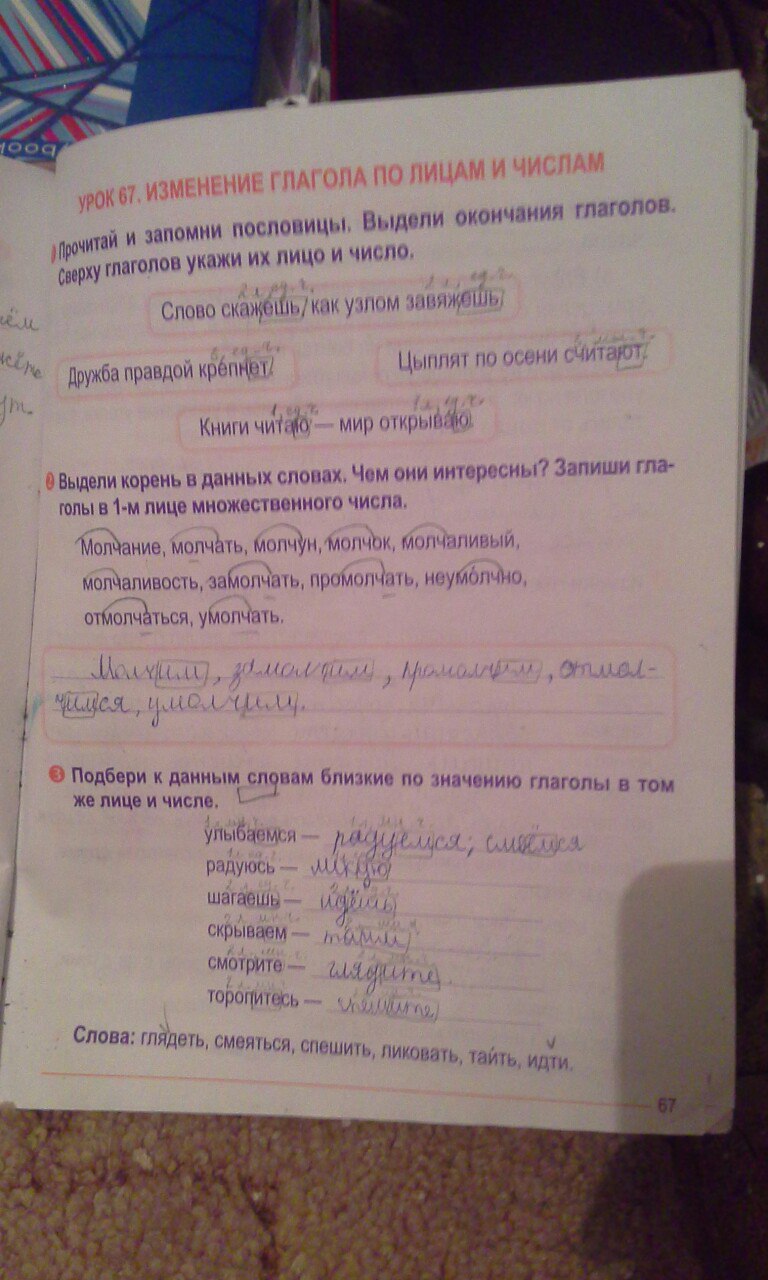 УРОК 67. ИЗМЕНЕНИЕ ГЛАГОЛА ПО ЛИЦАМ И ЧИСЛАМ
Прочитай и запомни пословицы. Выдели окончания глаголов.
Сверху глаголов укажи их лицо и число.
2 л, ед. ч. 2 л., ед. ч.
Слово скажешь, как узлом завяжешь
ед. ч.
Дружба правдой крепнет Цыплят по осени считают
1, ед. ч. 1 л, ед. ч.
Книги читаю — мир открываю
2 Выдели корень в данных словах. Чем они интересны? Запиши гла-
голы в 1-м лице множественного числа.
Молчание, молчать, молчун, молчок, молчаливый,
молчаливость, замолчать, промолчать, неумо́лчно,
отмолчаться, умолчать.
Молчим, замолчим, промолчим, отмол-
чимся, умолчим.
3 Подбери к данным словам близкие по значению глаголы в том
же лице и числе.
улыбаемся — радуемся; смеёмся
радуюсь — ликую
шагаешь — идёшь
скрываем — таим
смотрите — глядите
торопитесь — спешите
Слова: глядеть, смеяться, спешить, ликовать, таи́ть, идти.
67